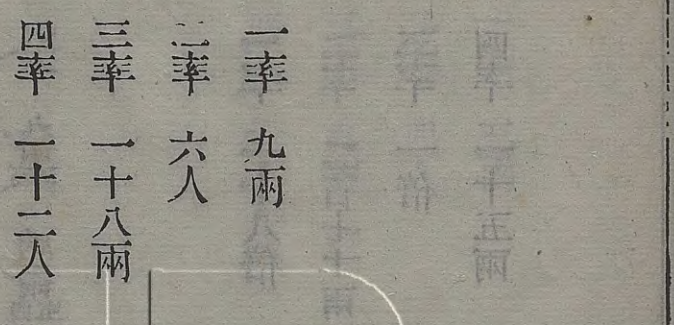 一率　九兩
二率　六人
三率　一十八兩
四率　一十二人